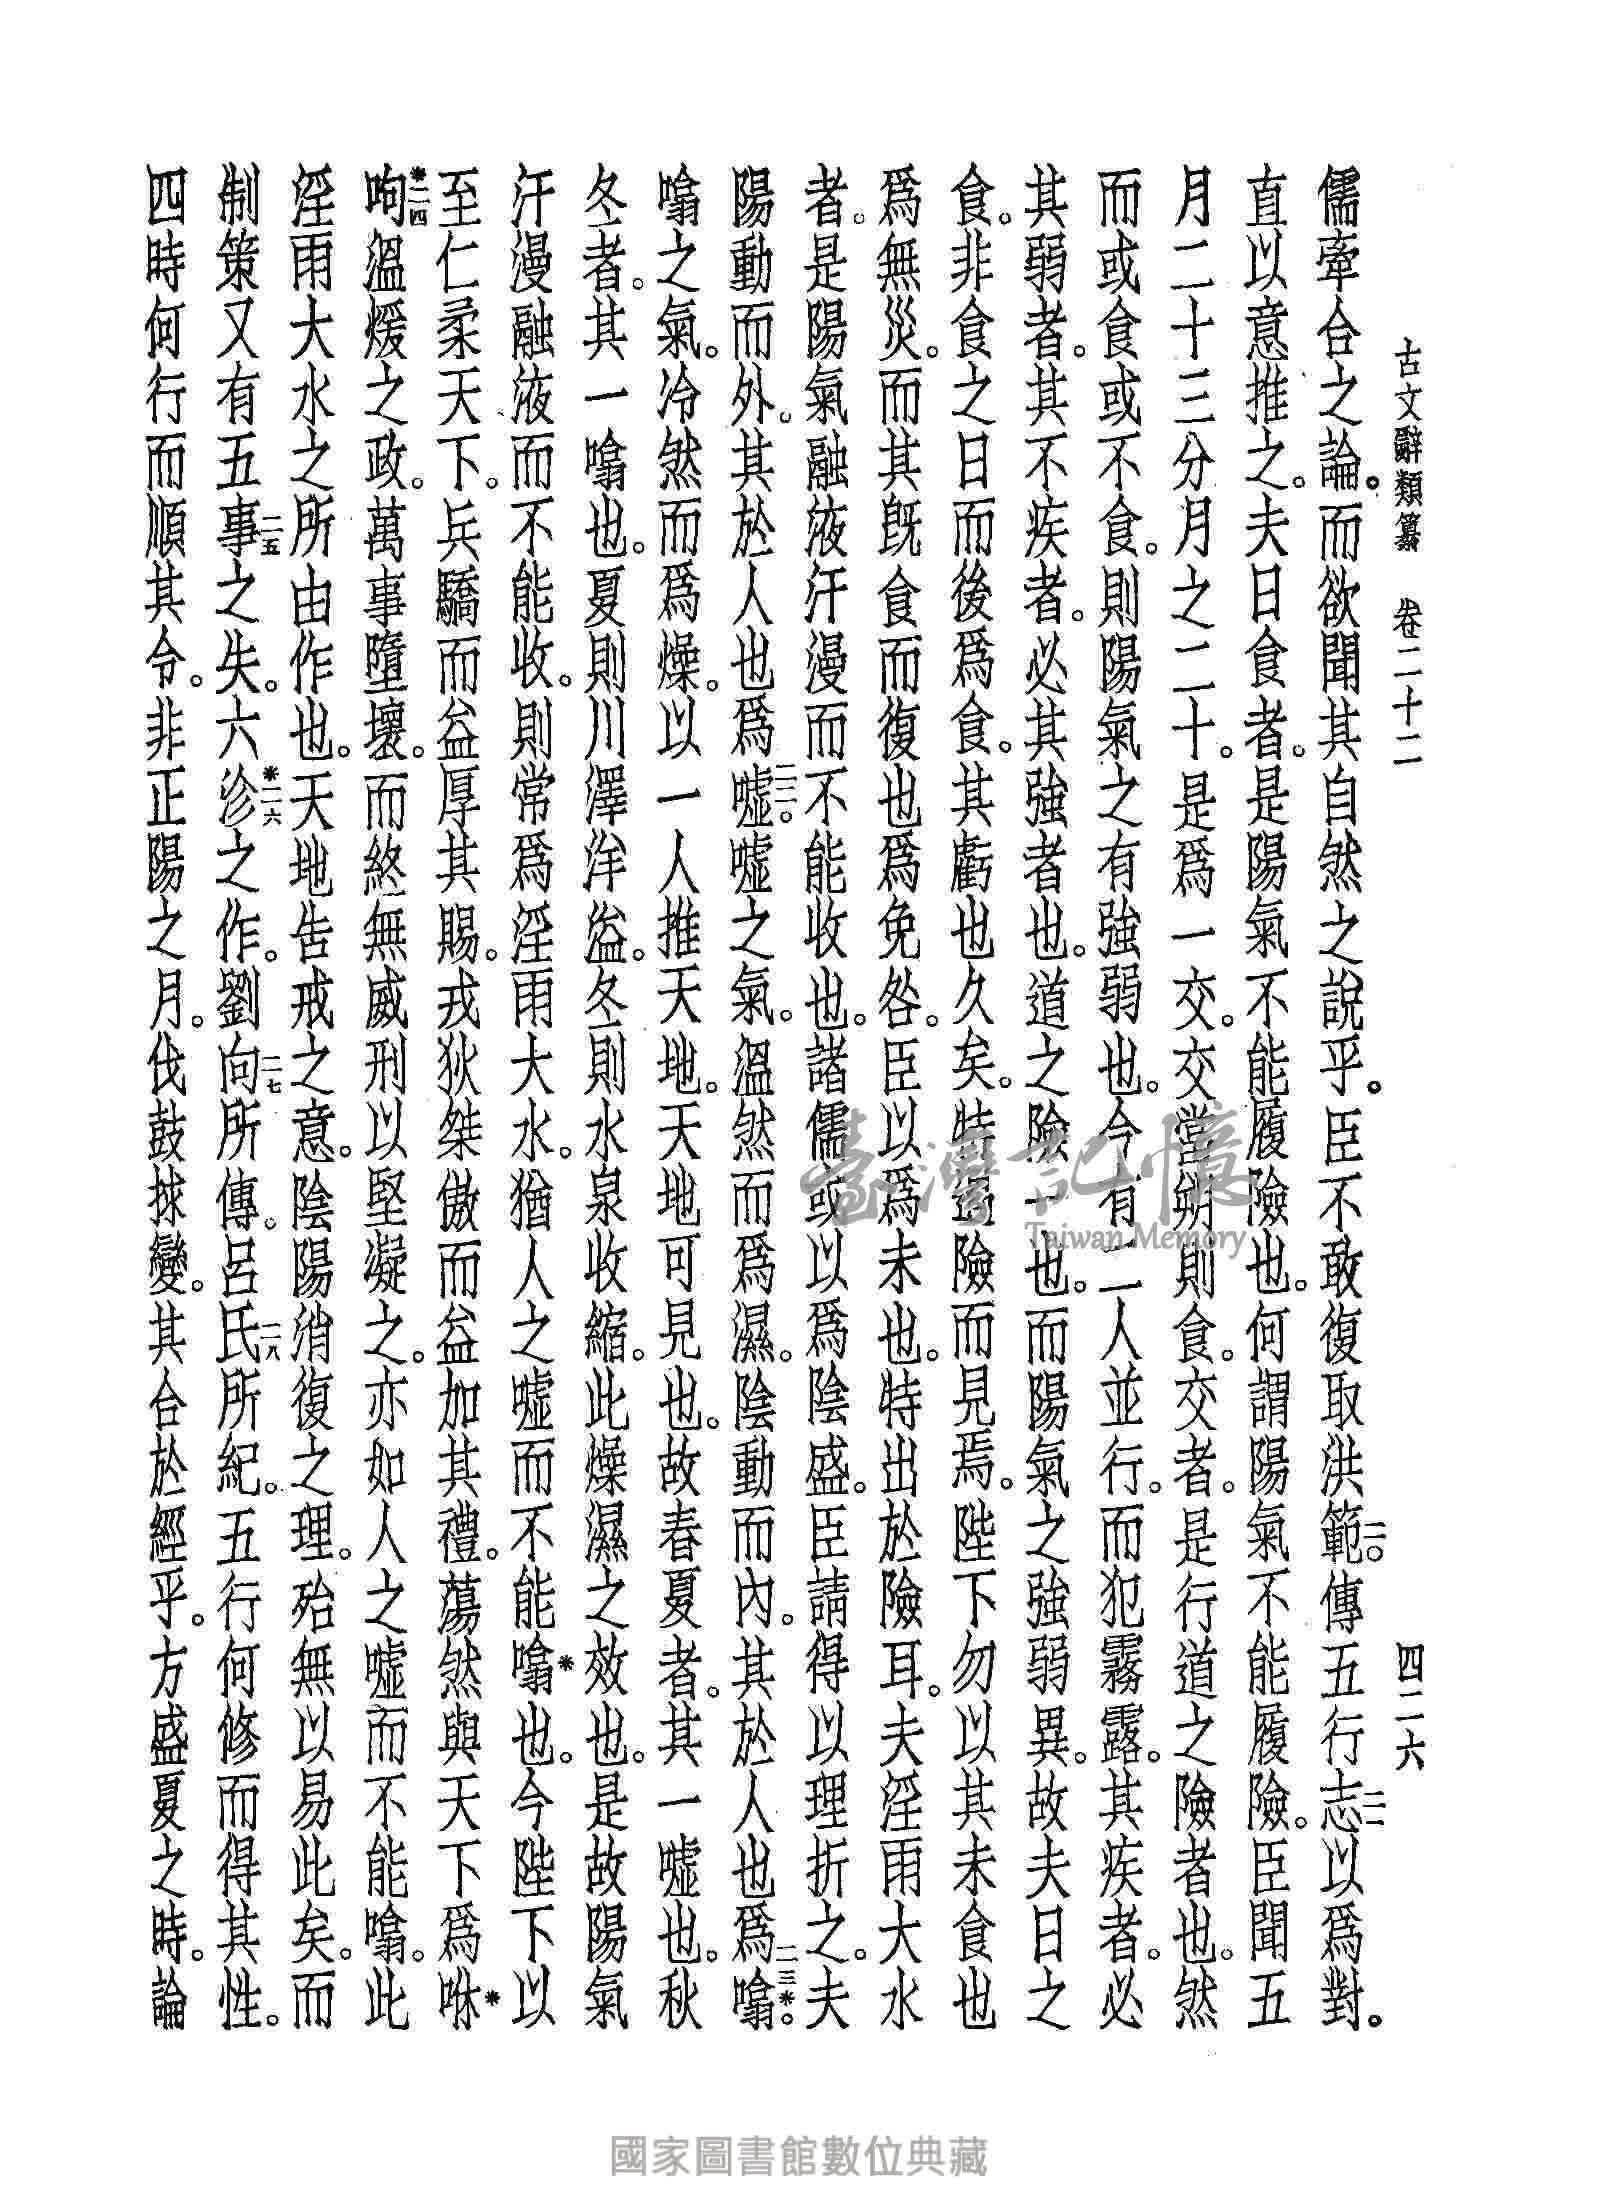 古文辭類纂 卷二十二 四二六
儒牽合之論。而欲聞其自然之說乎。臣不敢復取洪範二〇傳五行志二一以爲對。
直以意推之。夫日食者。是陽氣不能履險也。何謂陽氣不能履險。臣聞五
月二十三分月之二十。是爲一交。交當朔則食。交者。是行道之險者也。然
而或食或不食。則陽氣之有強弱也。今有二人並行。而犯霧露。其疾者。必
其弱者。其不疾者。必其強者也。道之險一也。而陽氣之強弱異。故夫日之
食。非食之日而後爲食。其虧也久矣。特遇險而見焉。陛下勿以其未食也
爲無災。而其既食而復也爲免咎。臣以爲未也。特出於險耳。夫淫雨大水
者。是陽氣融液汗漫而不能收也。諸儒或以爲陰盛。臣請得以理折之。夫
陽動而外。其於人也爲噓二二。噓之氣。溫然而爲濕。陰動而內。其於人也爲噏二三*。
噏之氣。冷然而爲燥。以一人推天地。天地可見也。故春夏者。其一噓也。秋
冬者。其一噏也。夏則川澤洋溢。冬則水泉收縮。此燥濕之效也。是故陽氣
汗漫融液而不能收。則常爲淫雨大水。猶人之噓而不能噏*也。今陛下以
至仁柔天下。兵驕而益厚其賜。戎狄桀傲而益加其禮。蕩然與天下爲咻*
呴*二四溫煖之政。萬事墮壞。而終無威刑以堅凝之。亦如人之噓而不能噏。此
淫雨大水之所由作也。天地告戒之意。陰陽消復之理。殆無以易此矣。而
制策又有五事二五之失。六沴*二六之作。劉向二七所傳。呂氏二八所紀。五行何修而得其性。
四時何行而順其令。非正陽之月。伐鼓捄變。其合於經乎。方盛夏之時。論
臺灣記憶
Taiwan Memory
國家圖書館數位典藏